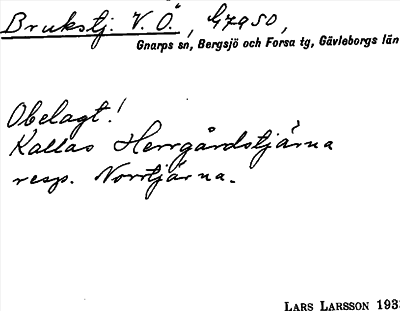 Brukstj. V. Ö., G7950,
Gnarps sn, Bergsjö och Forsa tg, Gävleborgs län
Obelagt!
Kallas Herrgårdstjärna
resp. Norrtjärna.
LARS LARSSON 193